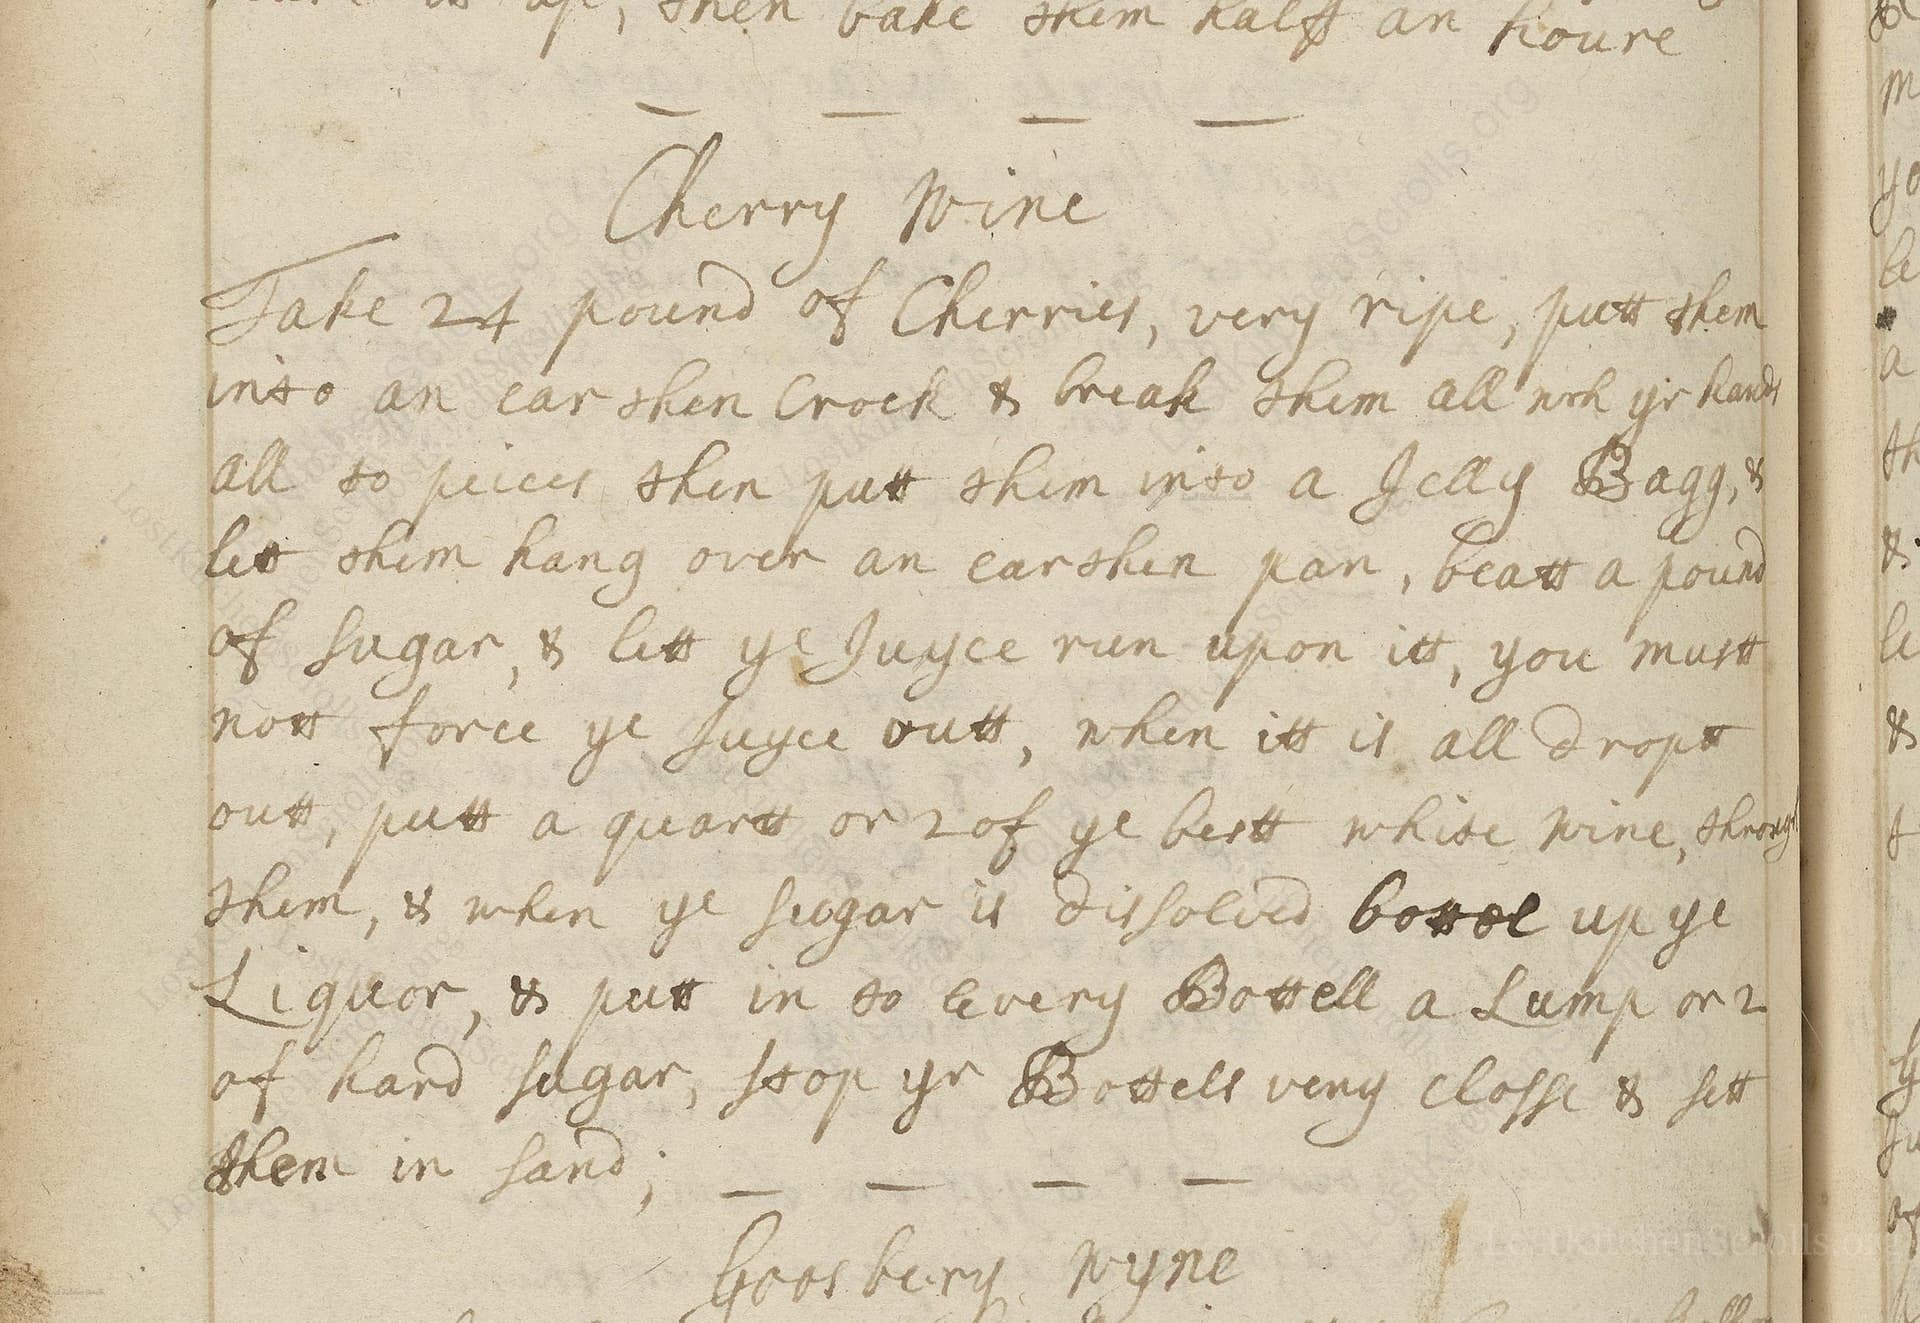 up, then bake them halft an houre
Cherry Wine
Take 24 pound of Cherries, very ripe, putt them
into an earthen Crock & break them all wth yr hands
all to peices then putt them into a Jelly Bagg, &
lett them hang over an earthen pan, beatt a pound
of sugar, & lett ye Juyce run upon itt, you mustt
nott force ye Juyce outt, when itt is all droptt
outt, putt a quartt or 2 of ye bestt white wine, through
them, & when ye sugar is dissolved bottel up ye
Liquor, & putt in to every Bottell a Lump or 2
of hard sugar, stop yr Bottels very closse & sett
them in sand;
Goosbery Wyne